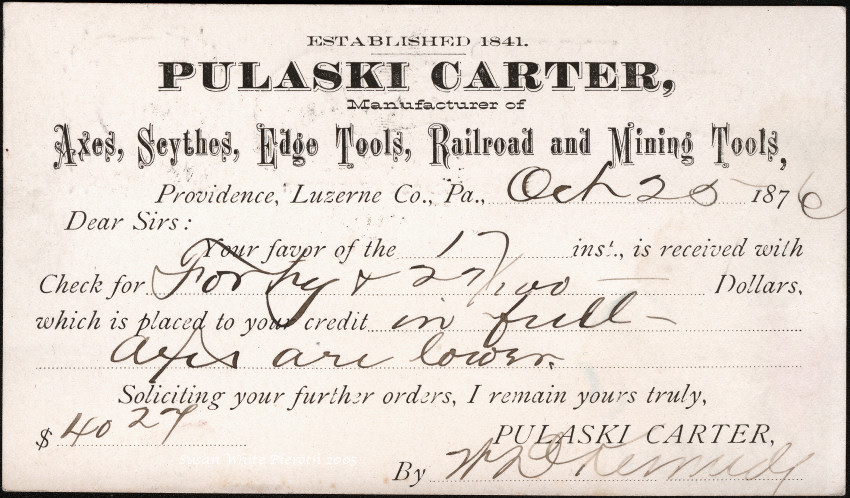 ESTABLISHED 1841.
PULASKI CARTER,
Manufacturer of
Axes, Scythes, Edge Tools, Railroad and Mining Tools,
Providence, Luzerne Co., Pa., Oct 25 1876
Dear Sirs:
Your favor of the 17 inst., is received with
Check for Forty & 27/100 Dollars,
which is placed to your credit in full -
Axes are lower.
Soliciting your further orders, I remain yours truly,
$ 40 27
PULASKI CARTER,
By
Swan White Pierotti 2005